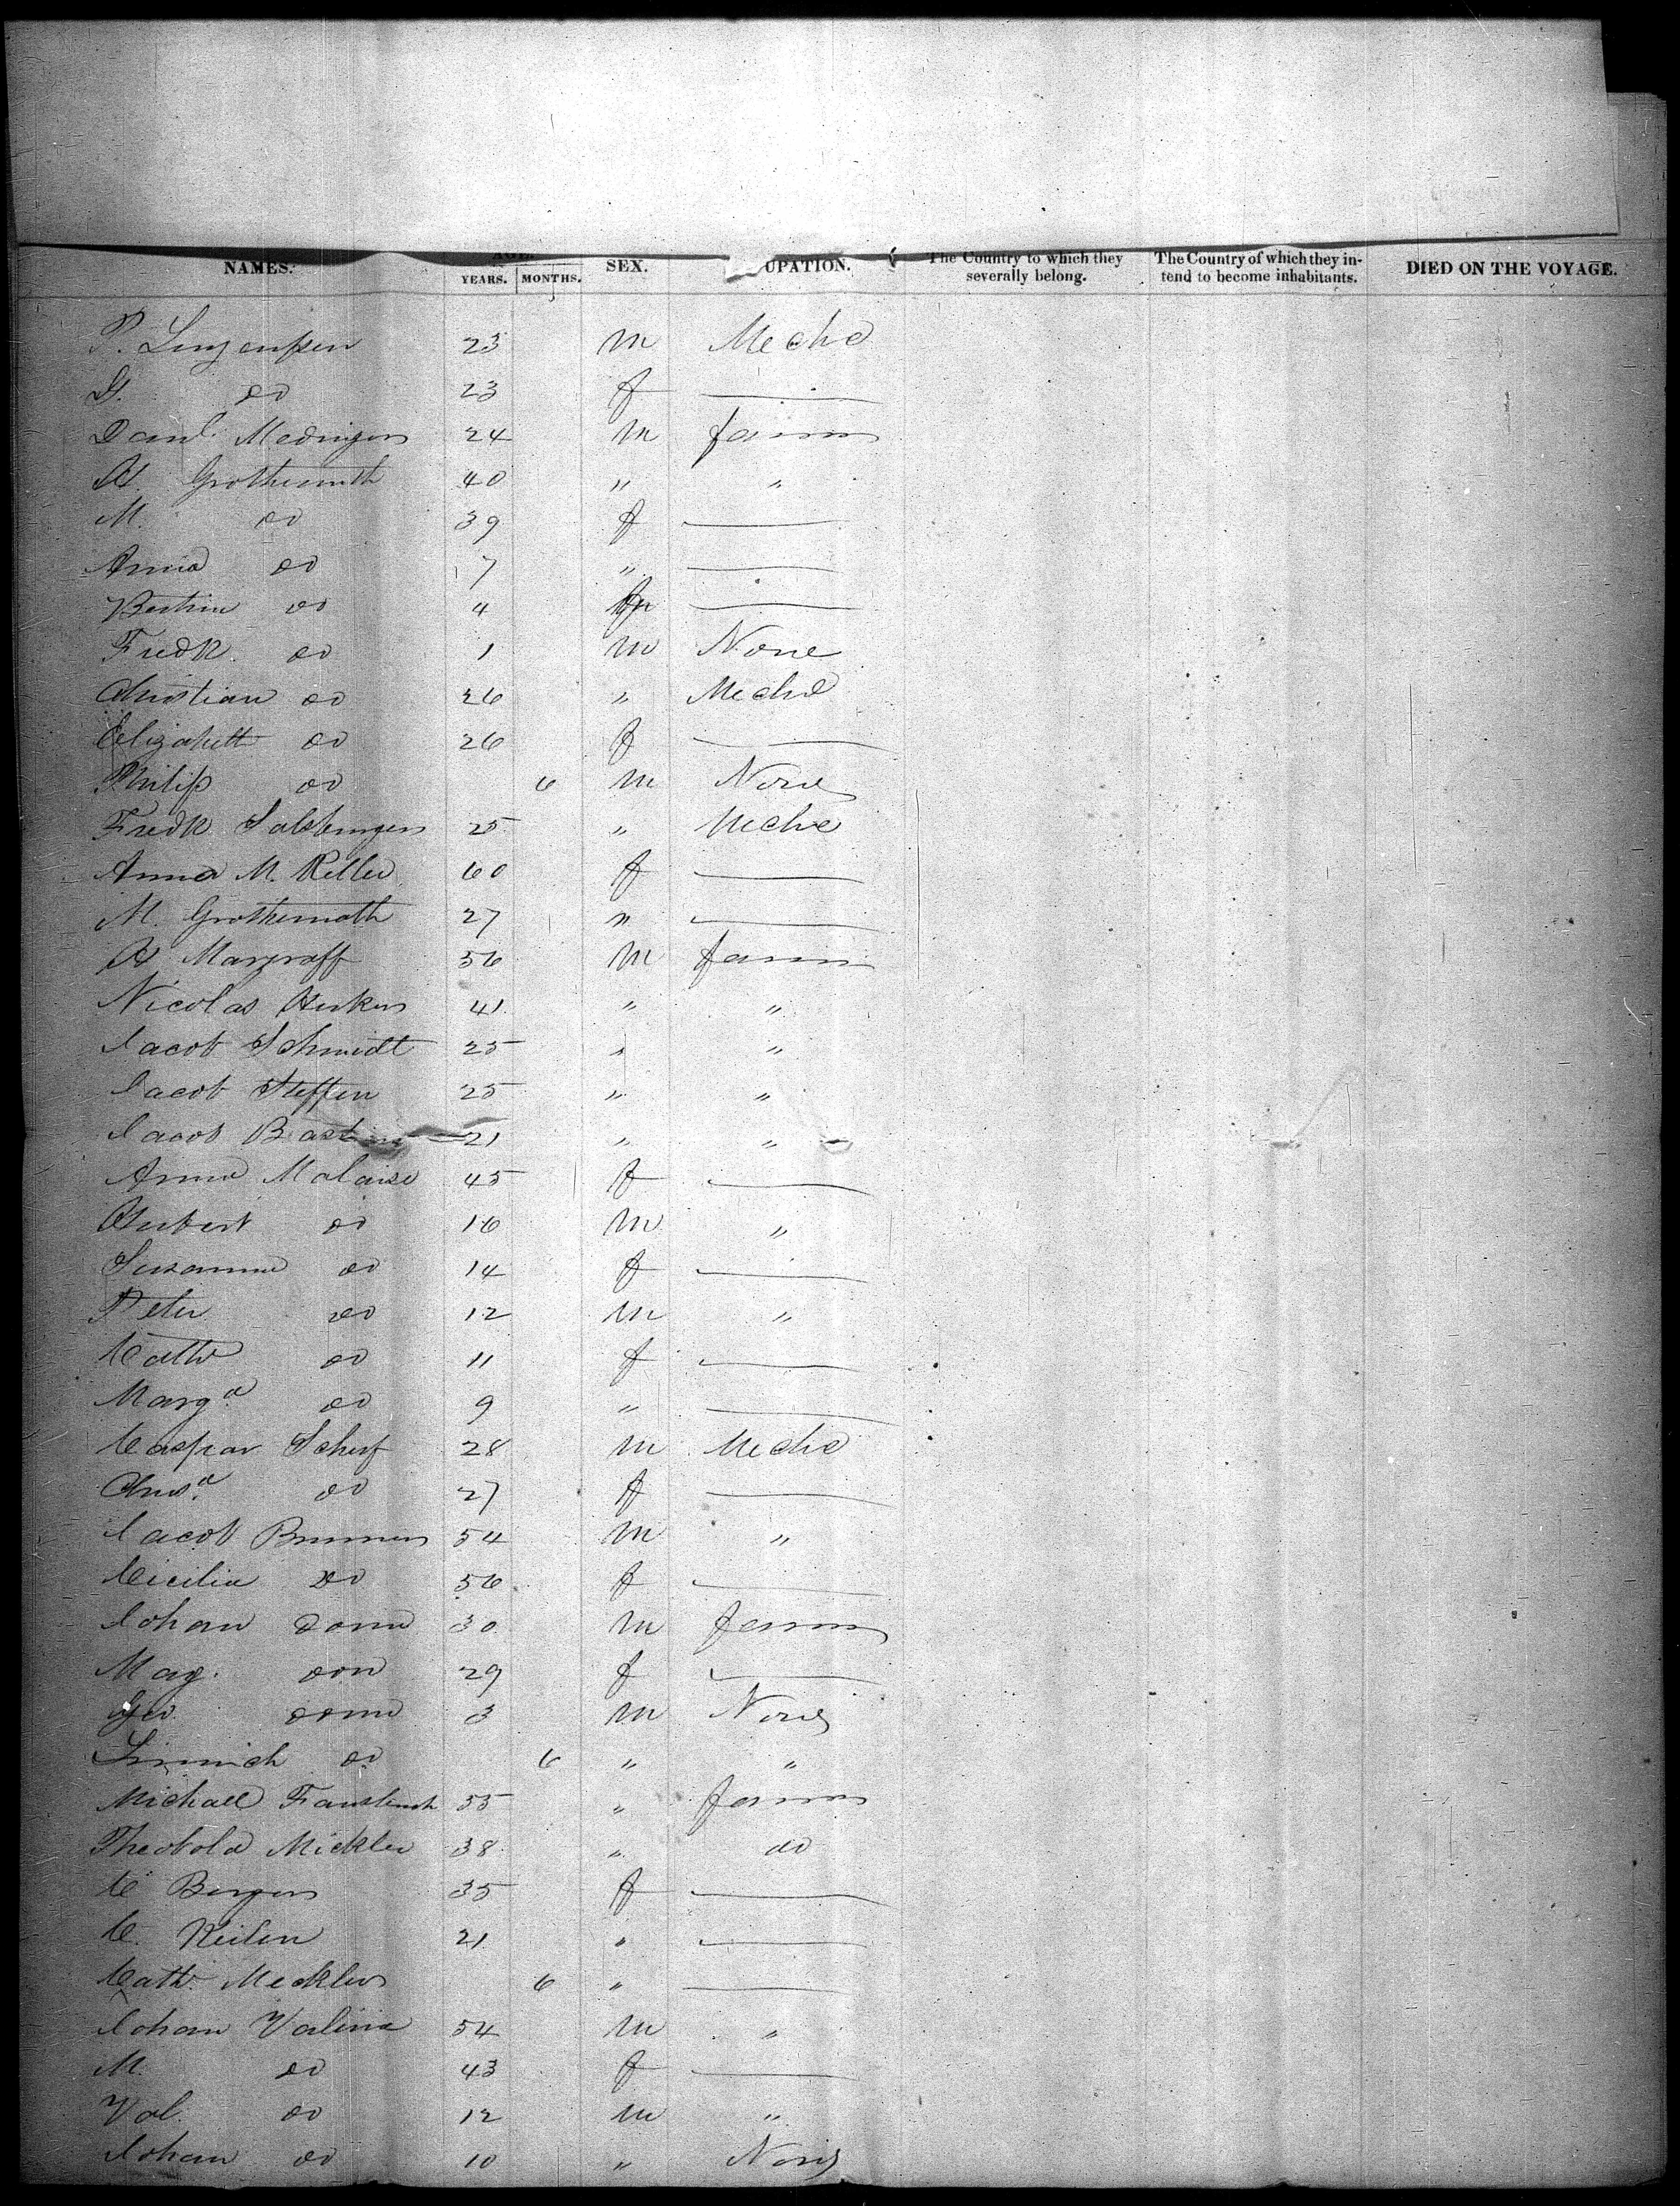 NAMES. AGE. YEARS. MONTHS. SEX. UPATION. The Country to which they severally belong. The Country of which they in-tend to become inhabitants. DIED ON THE VOYAGE.
P. 23 m Mechc
G. do 23 f —
Danl. Medinger 24 m farmr
H. Grothernuth 40 " "
M. do 39 f —
Anna do 7 " —
do 4 —
Fredk. do 1 m None
Christian do 26 " Mechc
Elizabeth do 26 f —
Philip do 6 m None
Fredk 25 " Mechc
Anna M. Keller 60 f —
M. Grothernuth 27 " —
H Margraff 56 m farmr
Nicolas 41 " "
Jacob Schmidt 25 " "
Jacob Steffen 25 " "
Jacob 21 " "
Anna Malaise 45 f —
Hubert do 16 m "
Susanna do 14 f —
Peter do 12 m "
Cathe do 11 f —
Marga. do 9 " —
Caspar Scherf 28 m Mechc
Chrsa. do 27 f —
Jacob 54 m "
Cicilia do 56 f —
Johan do 30 m farmr
Mag. do 29 f —
Geo. do 3 m None
do 6 " "
Michael 55 " farmr
Theobold Mickler 38 " do
C Berger 35 f —
C. 21 " —
Cath. Meckler 6 " —
Johan 54 m "
M. do 43 f —
Val. do 12 m "
Johan do 10 " None